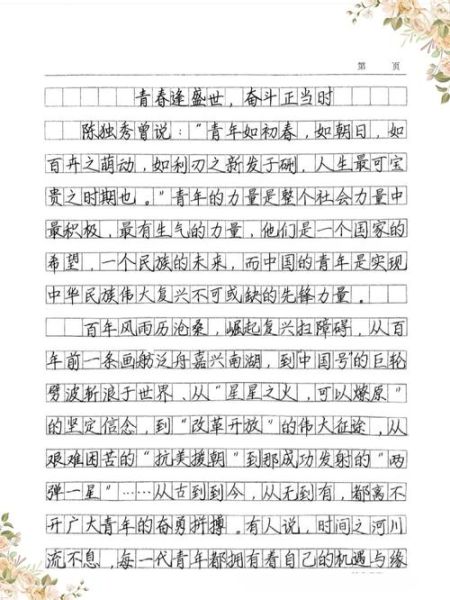 第 页
青春逢盛世，奋斗正当时
陈独秀曾说：“青年如初春，如朝日，如
百卉之萌动，如利刃之新发于硎，人生最可宝
贵之时期也。”青年的力量是整个社会力量中
最积极，最有生气的力量，他们是一个国家的
希望，一个民族的未来，而中国的青年是实现
中华民族伟大复兴不可或缺的先锋力量。
百年风雨历沧桑，崛起复兴扫障碍，从百
年前一条画舫泛舟嘉兴南湖，到“中国号”的巨轮
劈波斩浪于世界、从“星星之火，可以燎原”
的坚定信念，到“改革开放”的伟大征途，从
艰难困苦的“抗美援朝”到那成功发射的“两
弹一星”……从古到到今，从无到有，都离不
开广大青年的奋勇拼搏。有人说，时间之河川
流不息，每一代青年都拥有着自己的机遇与缘